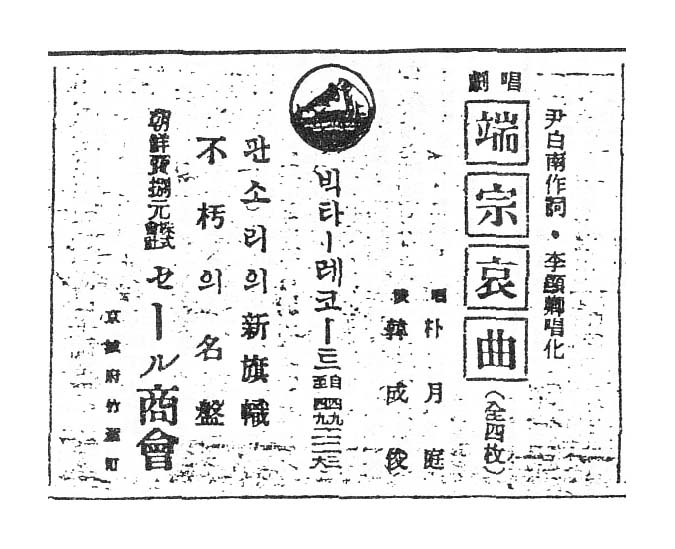 唱劇
端宗哀曲
(全四枚)
尹白南作詞・李顕卿唱化
唱 朴月庭
鼓 韓成俊
빅타ー레코ー드
自四九一二三
至四九一二六
판소리의新旗幟
不朽의名盤
朝鮮發捌元 株式會社 セール商會
京城府竹添町